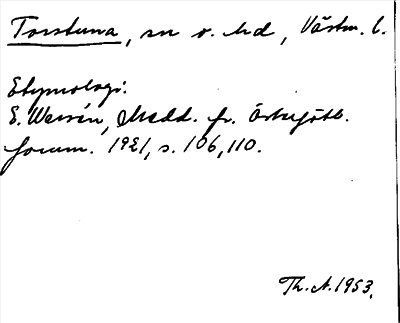 Torstuna, sn o. hd, Västm. l.
Etymologi:
E. Wessén, Medd. fr. Östergötl.
fornm. 1921, s. 106, 110.
Th. A. 1953.